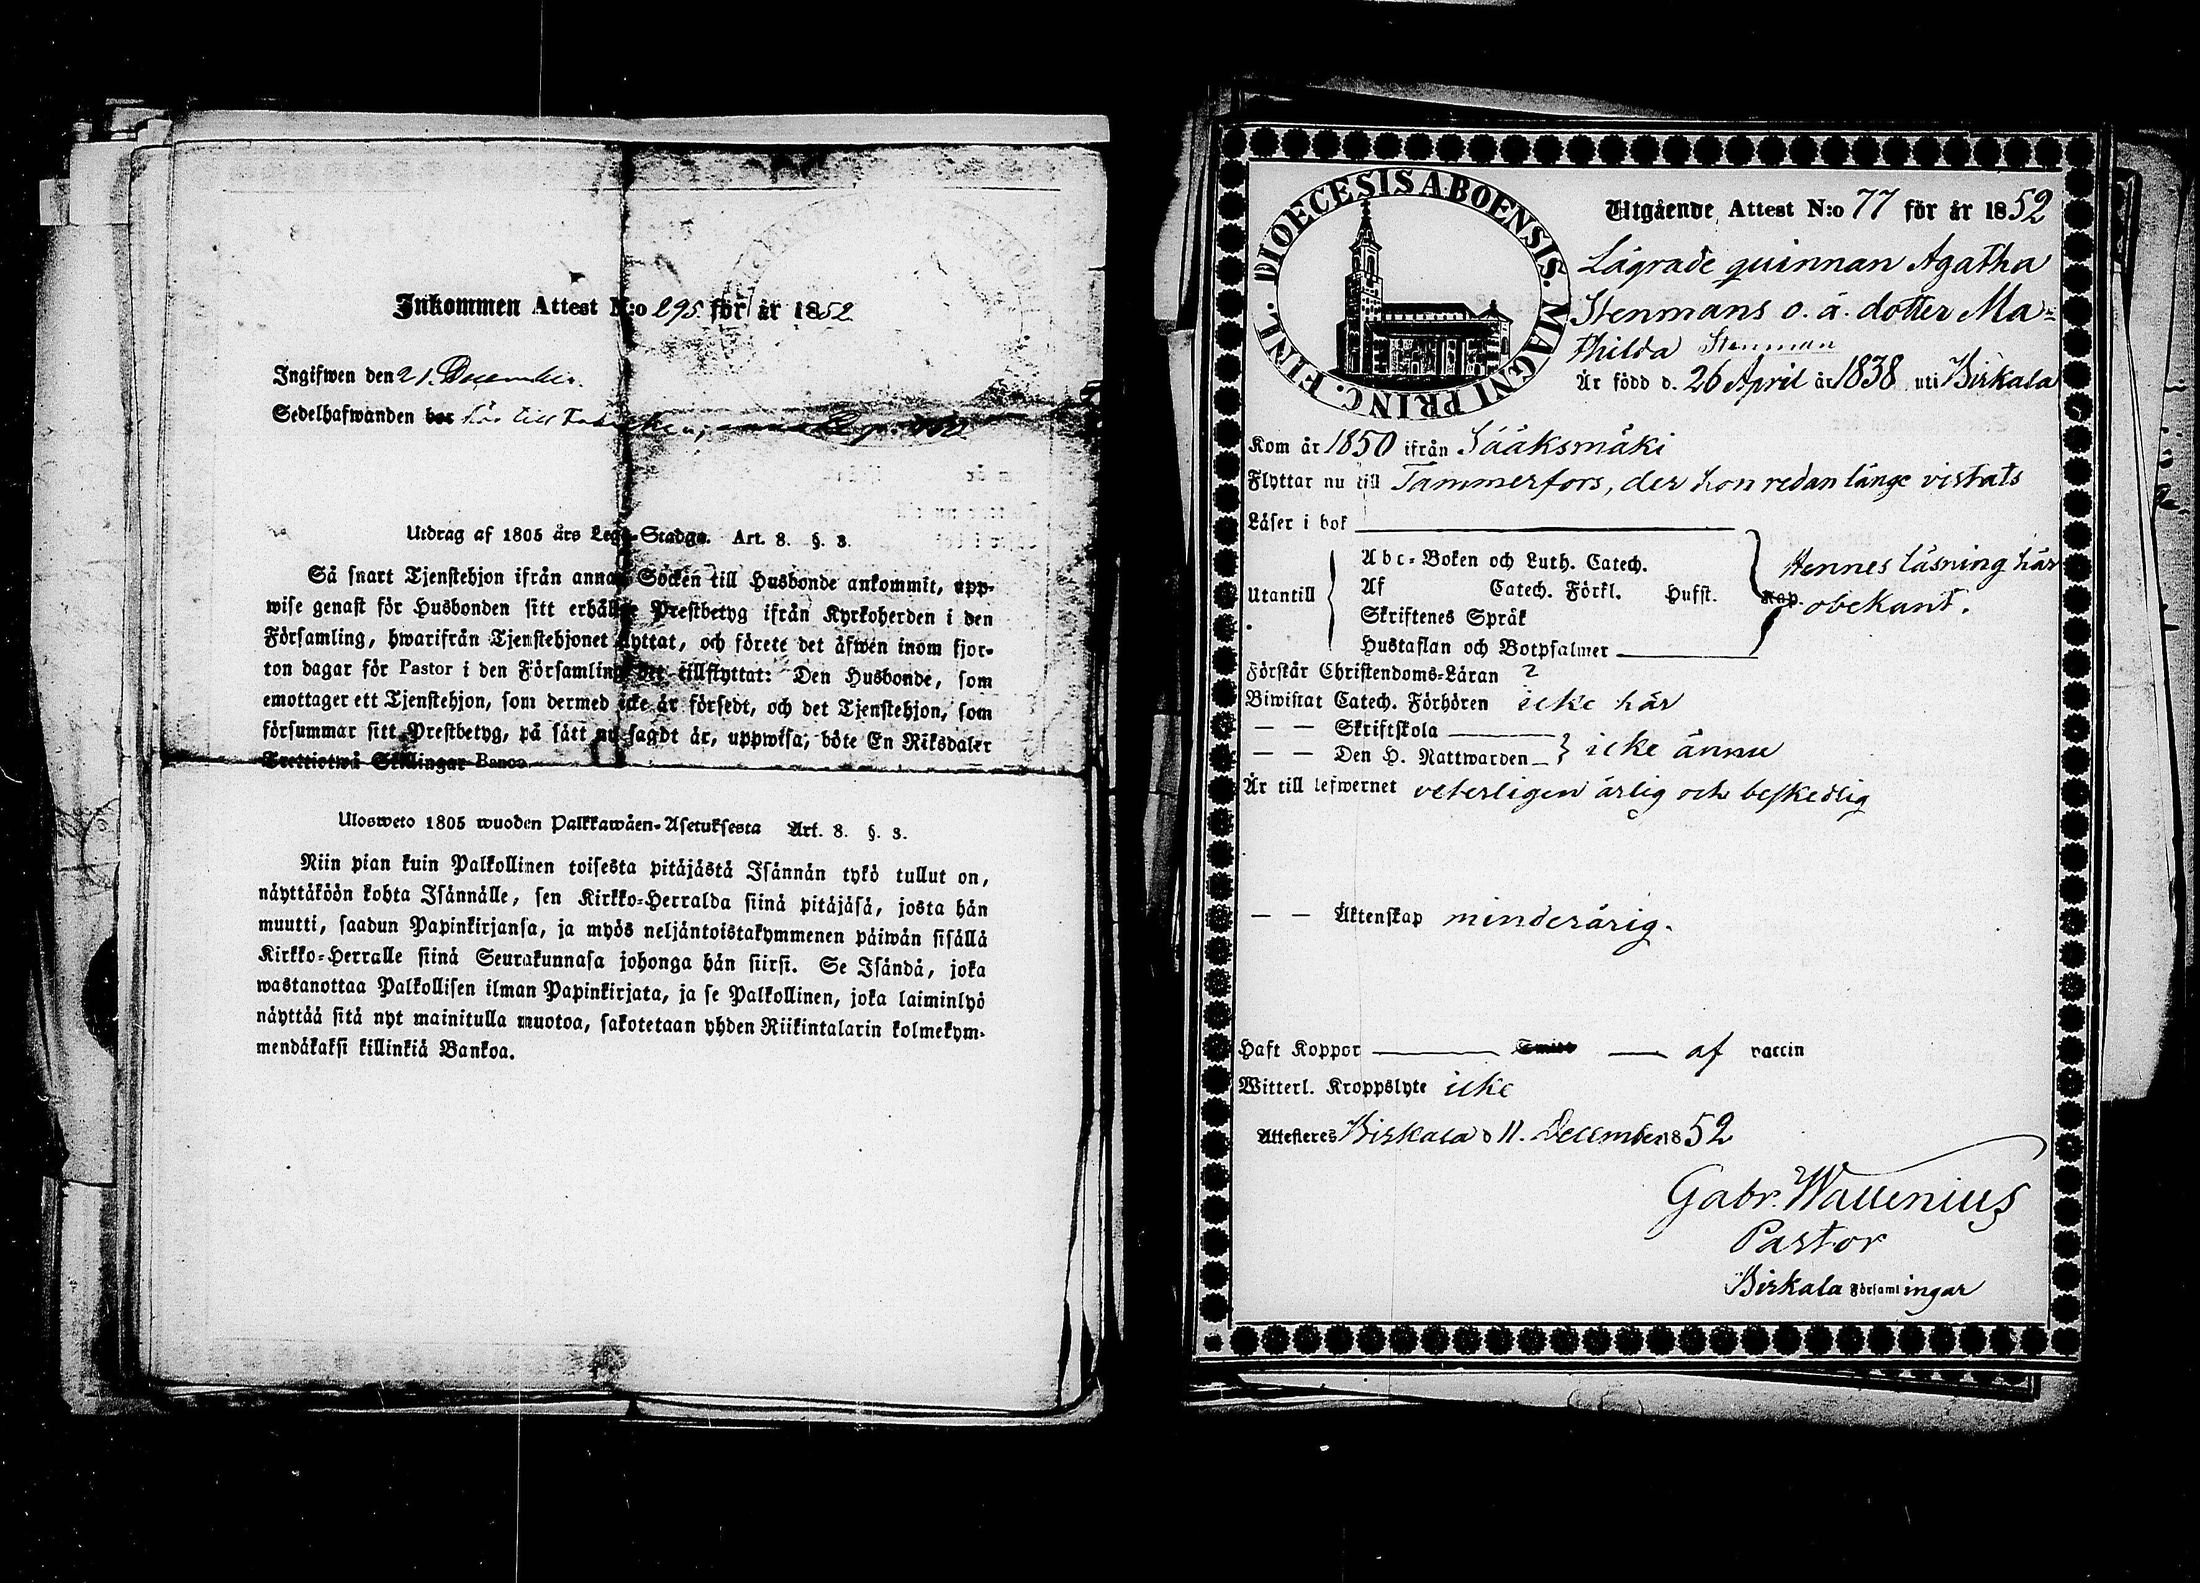 Inkommen Attest N:o 295 för år 1852
Ingifwen den 21. December.
Sedelhafwanden bor här till
Utdrag af 1805 års Lego-Stadga. Art. 8. §. 3.
Så snart Tjenstehjon ifrån annan Socken till Husbonde ankommit, upp-
wise genast för Husbonden sitt erhållne Prestbetyg ifrån Kyrkoherden i den
Församling, hwarifrån Tjenstehjonet flyttat, och förete det äfwen inom fjor-
ton dagar för Pastor i den Församling det tillflyttat: Den Husbonde, som
emottager ett Tjenstehjon, som dermed icke är försedt, och det Tjenstehjon, som
försummar sitt Prestbetyg, på sätt nu sagdt är, uppwisa, böte En Riksdaler
Trettiotwå Skillingar Banco.
Ulosweto 1805 wuoden Palkkawäen-Asetuksesta Art. 8. §. 3.
Niin pian kuin Palkollinen toisesta pitäjästä Isännän tykö tullut on,
näyttäköön kohta Isännälle, sen Kirkko-Herralda siinä pitäjäsä, josta hän
muutti, saadun Papinkirjansa, ja myös neljäntoistakymmenen päiwän sisällä
Kirkko-Herralle siinä Seurakunnasa johonga hän siirsi. Se Isändä, joka
wastanottaa Palkollisen ilman Papinkirjata, ja se Palkollinen, joka laiminlyö
näyttää sitä nyt mainitulla muotoa, sakotetaan yhden Riikintalarin kolmekym-
mendäkaksi killinkiä Bankoa.
DIOECESIS ABOENSIS. MAGNI PRINC. FINL.
Utgående Attest N:o 77 för år 1852
Lägrade quinnan Agatha
Stenmans o. ä. dotter Ma-
thilda Stenman
Är född d. 26 April år 1838 uti Birkala
Kom år 1850 ifrån Sääksmäki
Flyttar nu till Tammerfors, der hon redan länge vistats
Läser i bok
Utantill
Abc-Boken och Luth. Catech.
Af Catech. Förkl. Husst. Kap.
Skriftenes Språk
Hustaflan och Botpsalmer
Hennes läsning här
obekant.
Förstår Christendoms-Läran ?
Biwistat Catech. Förhören icke här
— — Skriftskola
— — Den H. Nattwarden } icke ännu
Är till lefwernet veterligen ärlig och beskedlig
— — Äktenskap minderårig.
Haft Koppor — — af vaccin
Witterl. Kroppslyte icke
Attesteres Birkala d 11. December 1852
Gabr. Wallenius
Pastor
Birkala Församlingar